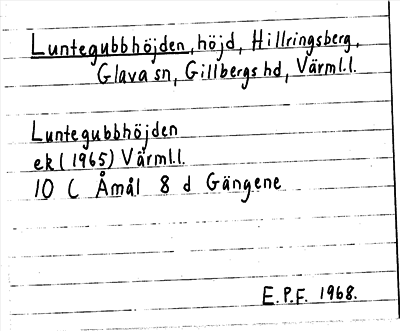 Luntegubbhöjden, höjd, Hillringsberg,
Glava sn, Gillbergs hd, Värml.l.
Luntegubbhöjden
ek (1965) Värml.l.
10 C Åmål 8 d Gängene
E.P.F. 1968.